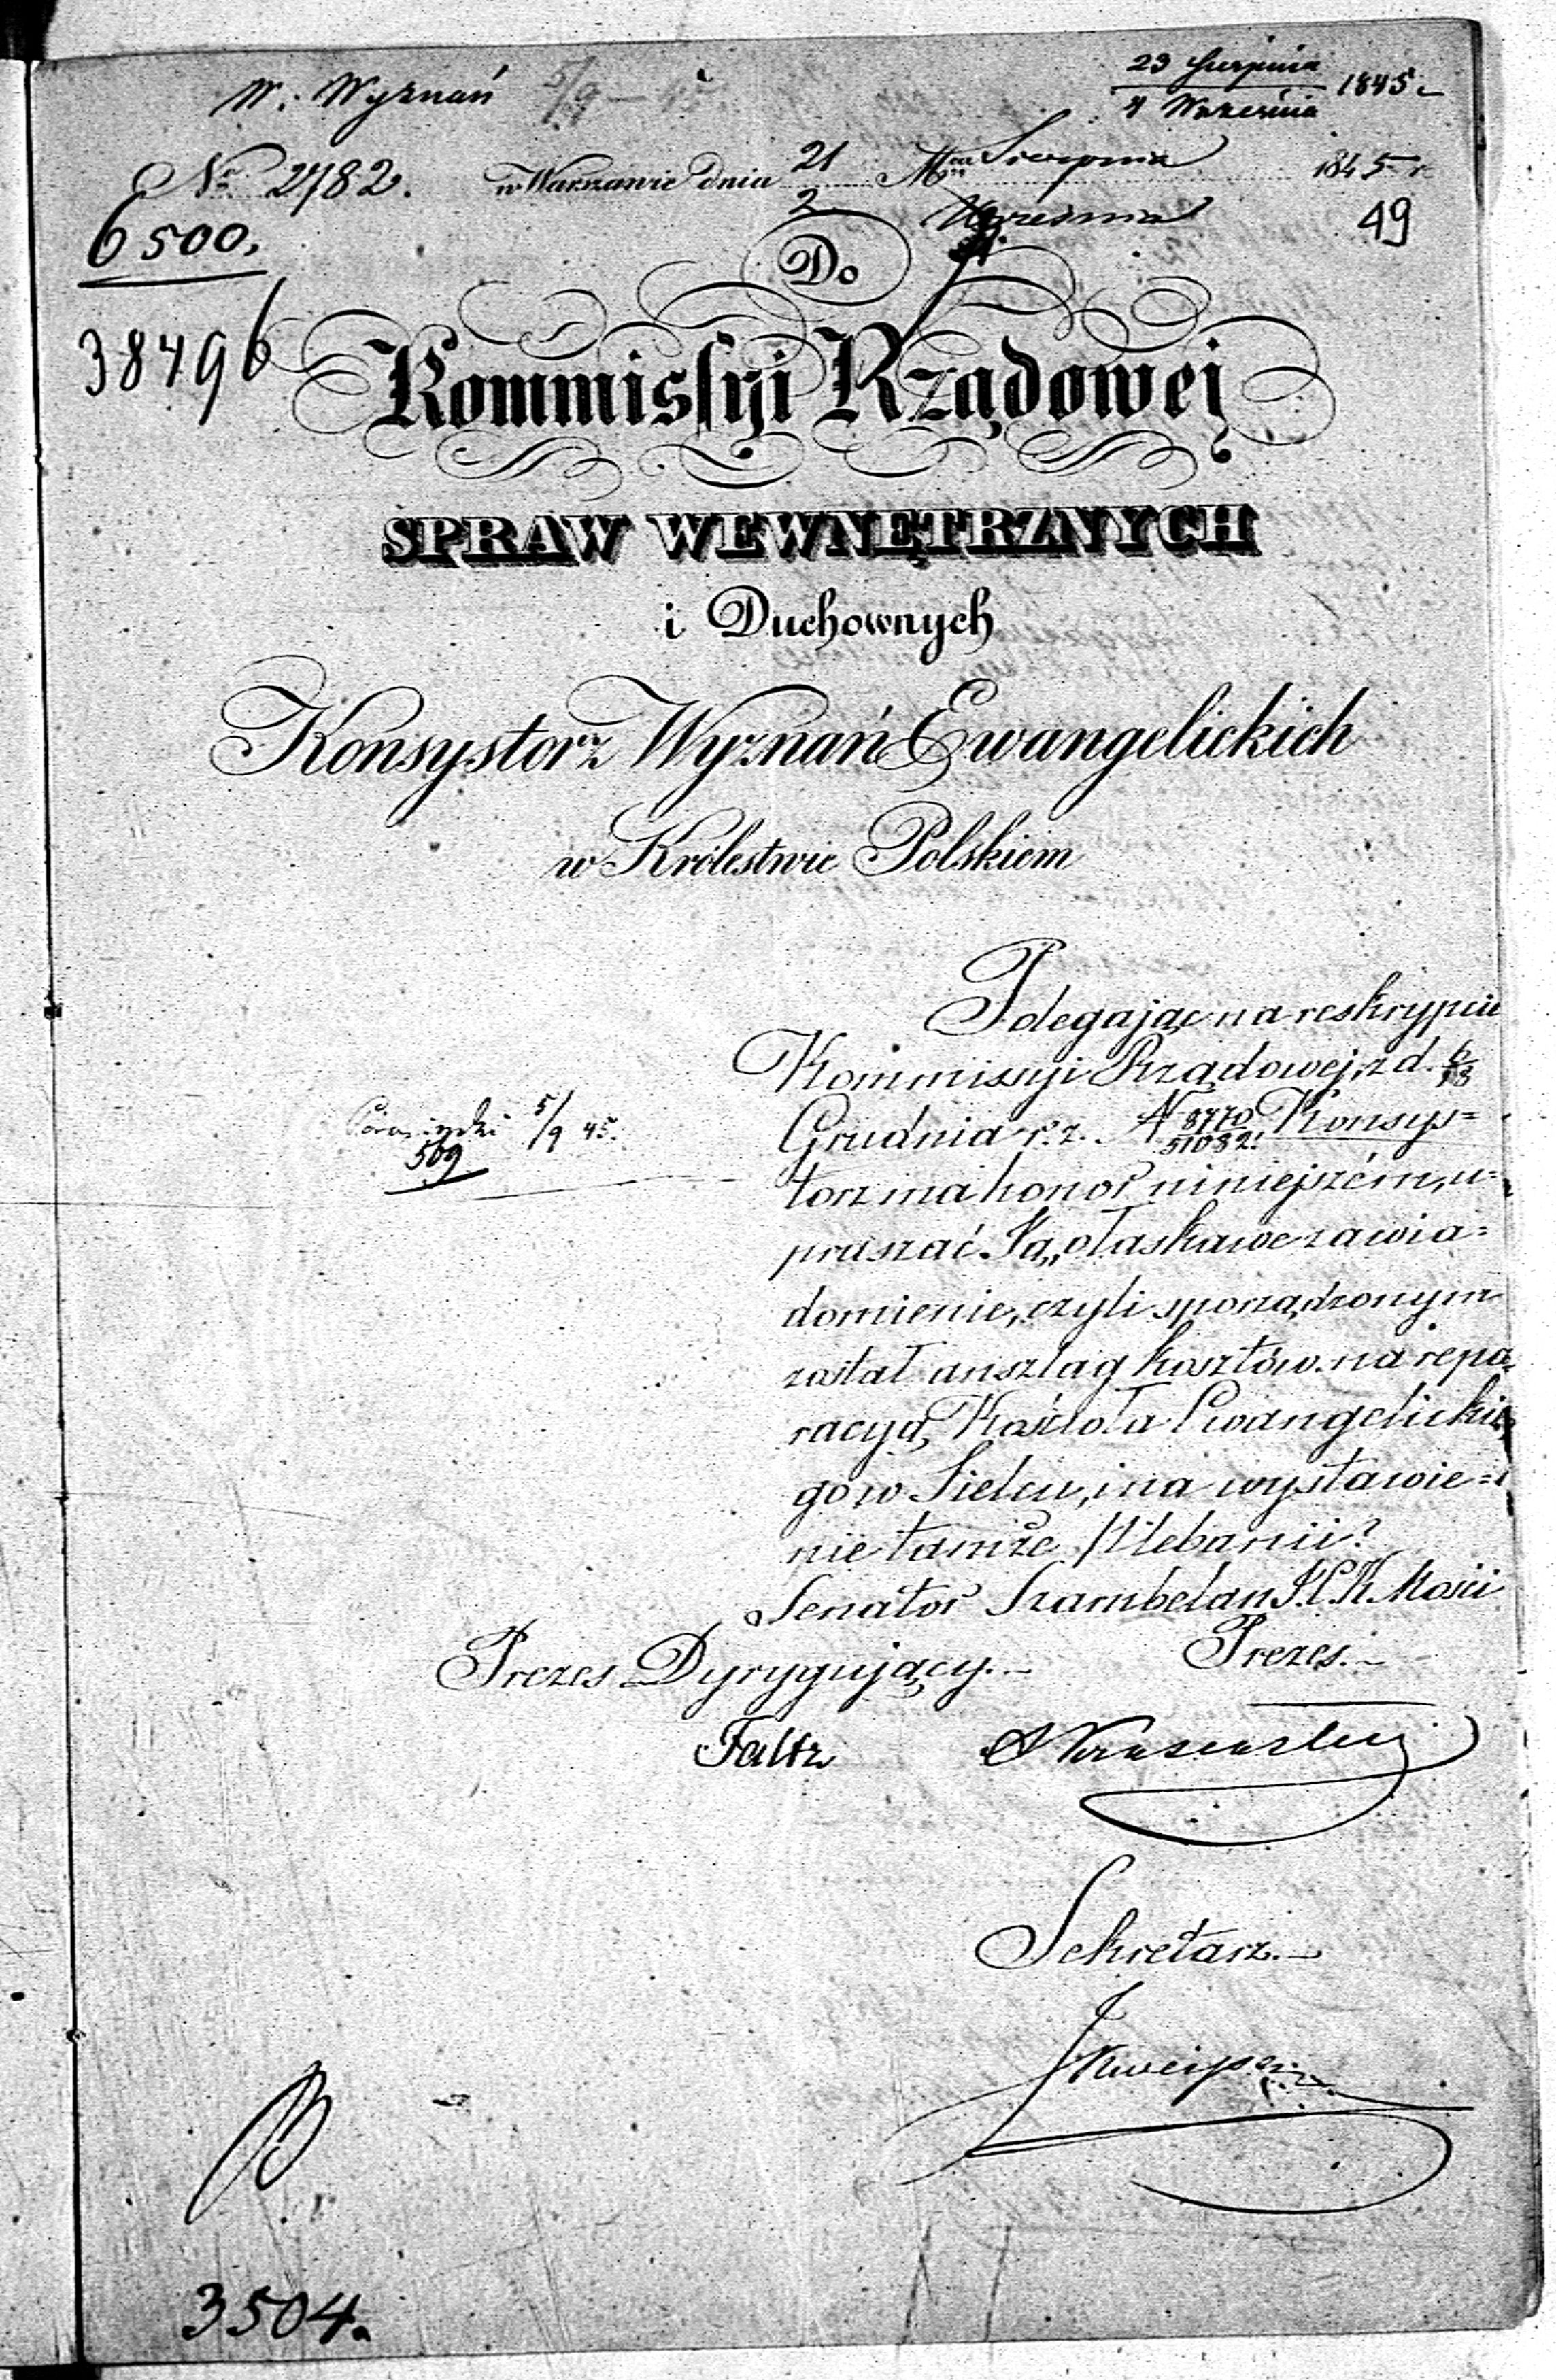 W. Wyznań 5/9 – 45
23 Sierpnia
4 Września 1845 r.
No 2782. w Warszawie dnia 21 Mca Sierpnia 1845 r.
2 Września
49
6500.
38796
Do
Kommissyi Rządowej
SPRAW WEWNĘTRZNYCH
i Duchownych
Konsystorz Wyznań Ewangelickich
w Królestwie Polskiem
Polegając na reskrypcie
Kommissyi Rządowej, z d. 6/18
Grudnia r. z. N 8770/51082. Konsys=
torz ma honor niniejszém, u=
praszać Ją, o łaskawe zawia=
domienie, czyli sporządzonym
został anszlag kosztów na repa=
racyą Kościoła Ewangelickie=
go w Sielcu, i na wystawie=
nie tamże Plebanii?
5/9 45.
509
Senator Szambelan J. C. K. Mości
Prezes Dyrygujący.– Prezes.–
Faltz
Sekretarz.–
3504.